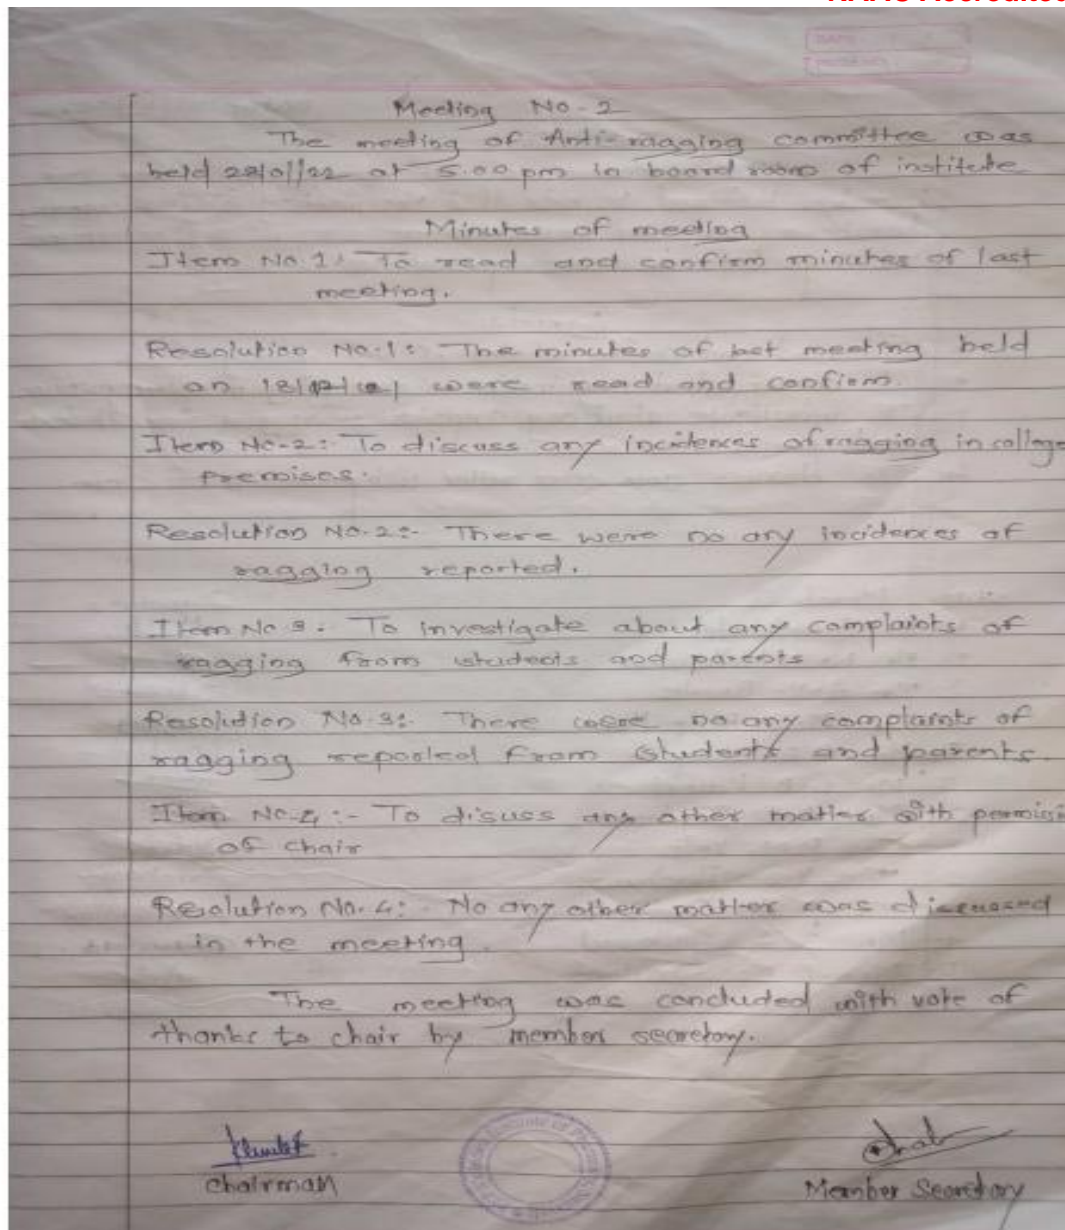 Meeting No-2
The meeting of Anti-ragging committee was
held at 5.00 pm in board room of institute
Minutes of meeting
Item No 1: To read and confirm minutes of last
meeting.
Resolution No.1: The minutes of last meeting held
on were read and confirm
Item No-2: To discuss any incidences of ragging in college
premises.
Resolution No.2:- There were no any incidences of
ragging reported.
Item No 3. To investigate about any complaints of
ragging from students and parents
Resolution No.3: There were no any complaints of
ragging reported from students and parents.
Item No-4:- To disuss any other matter with permissi
of chair
Resolution No.4:- No any other matter was discussed
in the meeting.
The meeting was concluded with vote of
thanks to chair by member secretory.
Chairman
Member Secretary